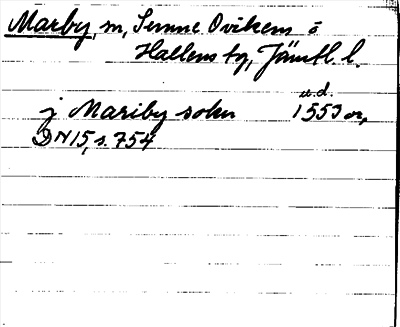 Marby, sn, Sunne Ovikens o
Hallens tg, Jämtl. l.
u.d.
j Mariby sokn 1553 or,
DN 15, s. 754